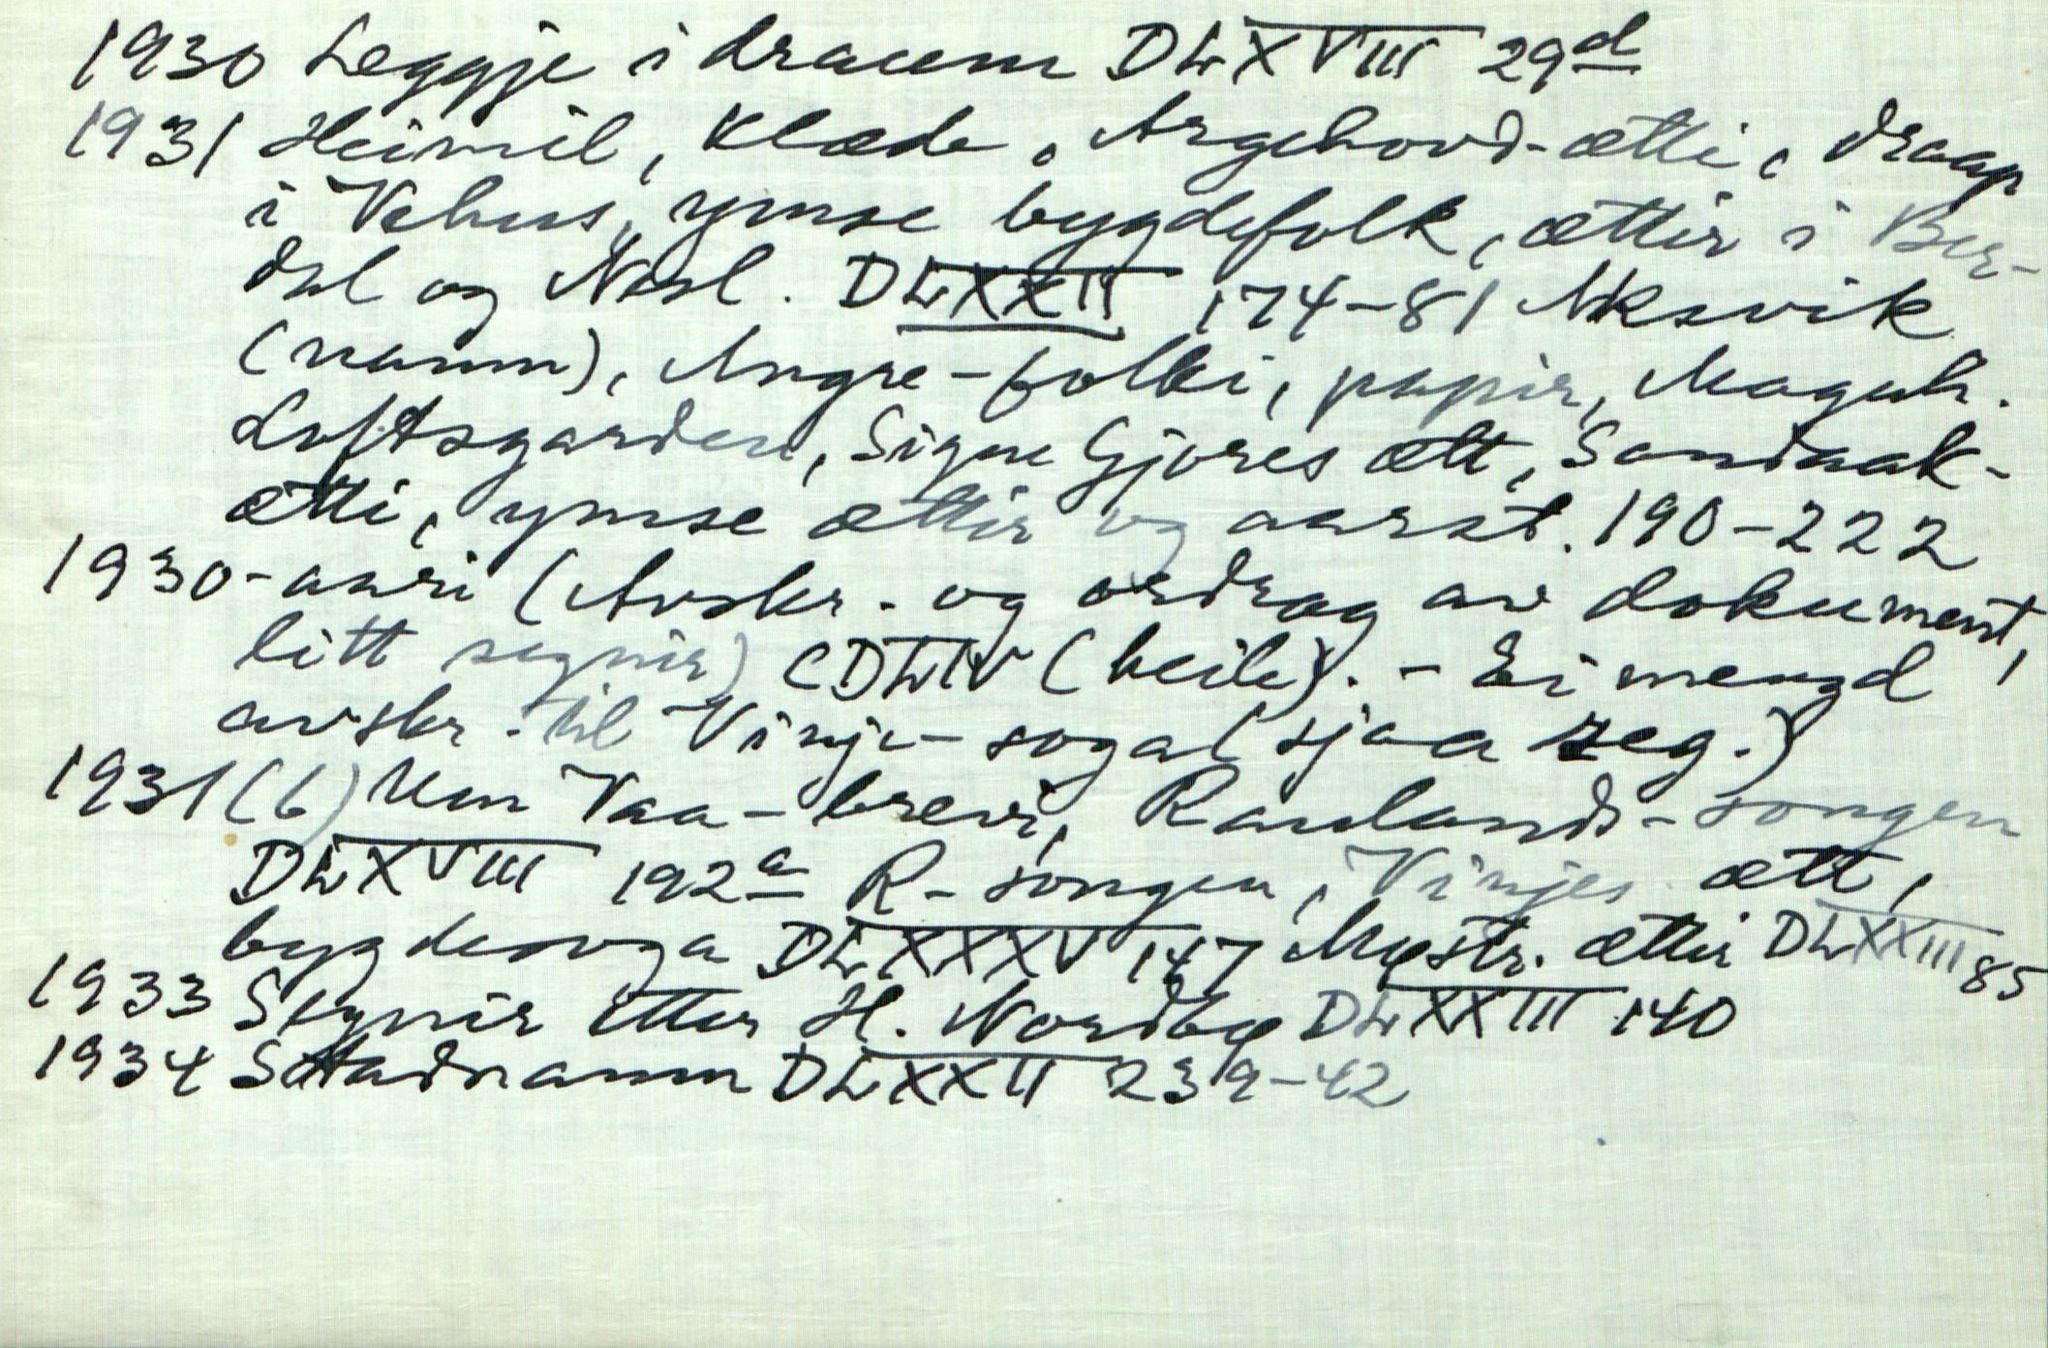 1930 Leggje i draum DLXVIII 29d
1931 Heimil, Klæde, Argehovd-ætti, draap
i Vehus, ymse bygdefolk, ættir i Ber-
dal og Nesl. DLXXII 174-81 Aksvik
(namn), Angre-folki, papir, Maguh.
Loftsgarden, Signe Gjores ætt, Sandaak-
ætti, ymse ættir og aarst. 190-222
1930-aari (Avskr. og ordrag av dokument,
litt segnir) CDLIV (heile). - Ei mengd
avskr. til Vinje-soga (sjaa reg.)
1931(6) Um Vaa-brevi, Raulands-songen
DLXVIII 192a R-songen, Vinjes ætt,
bygdesoga DLXXXV 147 Møstr. ættir DLXXIII 85
1933 Segnir etter H. Nordbø DLXXIII 140
1934 Stadnamn DLXXII 239-42